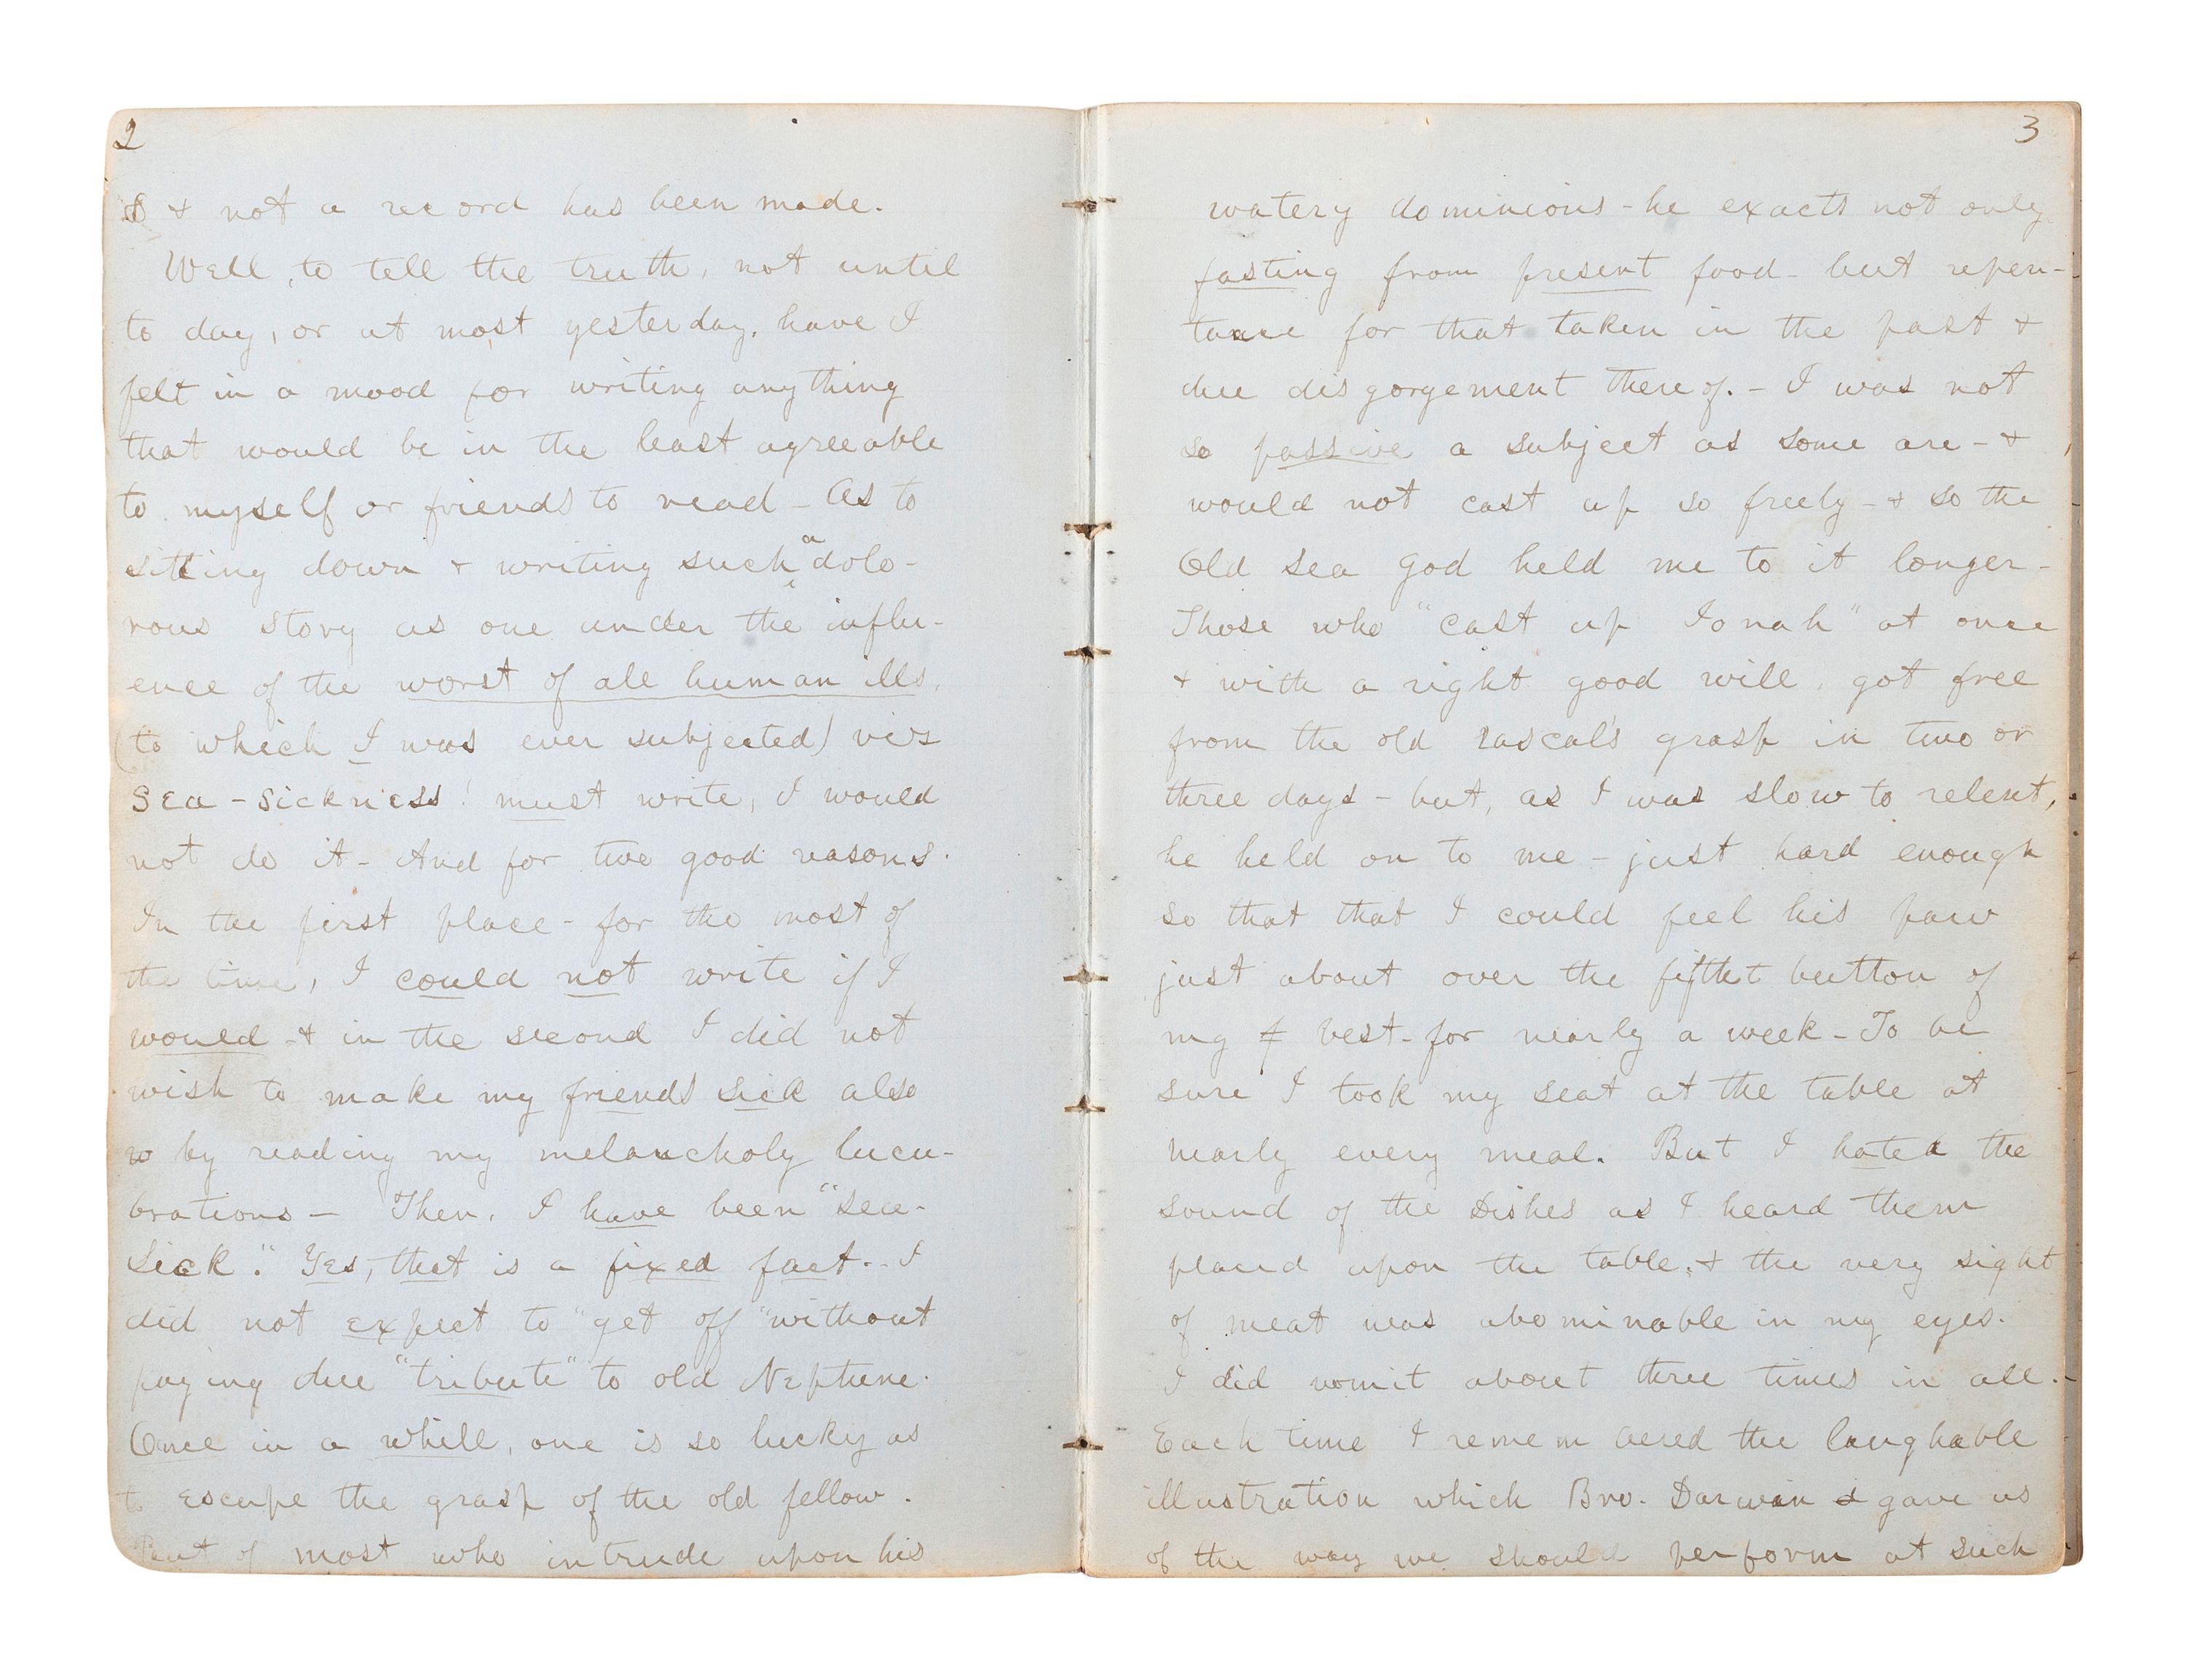 2
& not a record has been made.
Well, to tell the truth, not until
to day, or at most yesterday, have I
felt in a mood for writing anything
that would be in the least agreeable
to myself or friends to read - As to
sitting down & writing such a dolo-
rous story as one under the influ-
ence of the worst of all human ills,
(to which I was ever subjected) viz
Sea-sickness! must write, I would
not do it - And for two good reasons.
In the first place - for the most of
the time, I could not write if I
would - & in the second I did not
wish to make my friends sick also
by reading my melancholy lucu-
brations — Then, I have been "sea-
sick". Yes, that is a fixed fact. - I
did not expect to "get off" without
paying due "tribute" to old Neptune.
Once in a while, one is so lucky as
to escape the grasp of the old fellow.
But of most who intrude upon his
3
watery dominions - he exacts not only
fasting from present food - but repen-
tance for that taken in the past &
due disgorgement thereof. - I was not
so passive a subject as some are - &
would not cast up so freely - & so the
Old Sea God held me to it longer -
Those who "cast up Jonah" at once
& with a right good will, got free
from the old rascal's grasp in two or
three days - but, as I was slow to relent,
he held on to me - just hard enough
so that that I could feel his paw
just about over the fifth button of
my vest - for nearly a week - To be
sure I took my seat at the table at
nearly every meal. But I hated the
sound of the Dishes as I heard them
placed upon the table, & the very sight
of meat was abominable in my eyes.
I did vomit about three times in all.
Each time I remembered the laughable
illustration which Bro. Darwin gave us
of the way we should perform at such